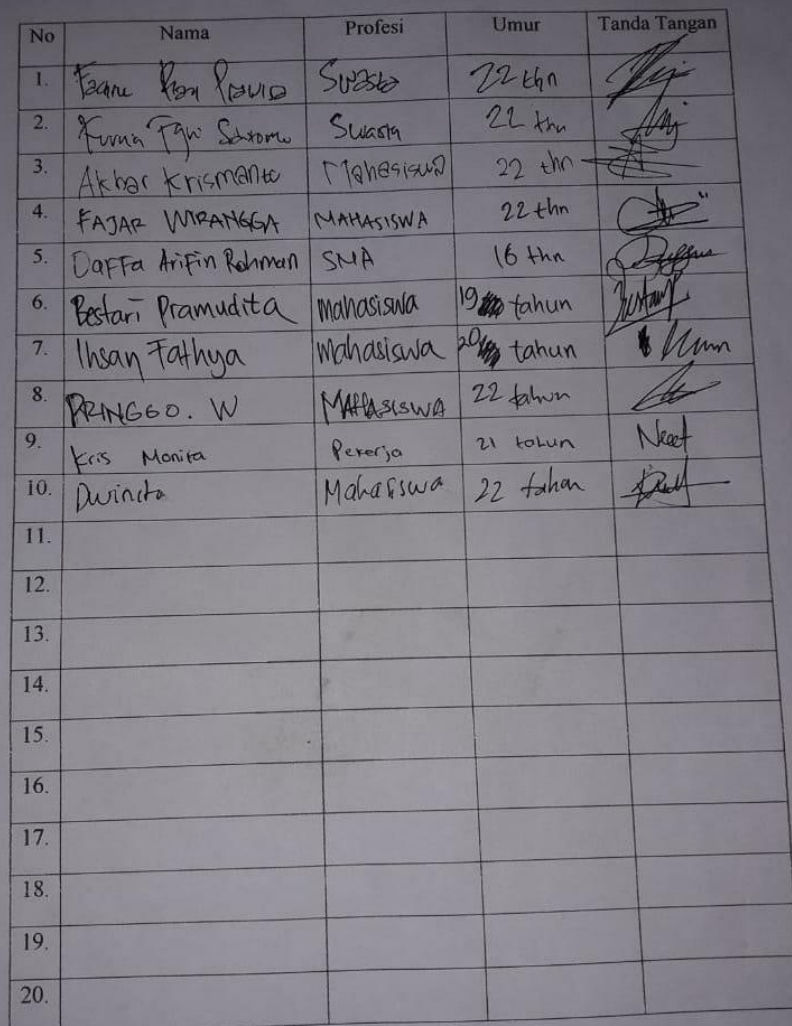 No Nama Profesi Umur Tanda Tangan
1. Swasta 22 thn
2. Swasta 22 thn
3. Akbar Krismanto Mahasiswa 22 thn
4. FAJAR WIRANGGA MAHASISWA 22 thn
5. Daffa Arifin Rohman SMA 16 thn
6. Bestari Pramudita Mahasiswa 19 tahun
7. Ihsan Fathya Mahasiswa 20 tahun
8. PRINGGO. W MAHASISWA 22 tahun
9. Kris Monita Pekerja 21 tahun
10. Mahasiswa 22 tahun
11.
12.
13.
14.
15.
16.
17.
18.
19.
20.